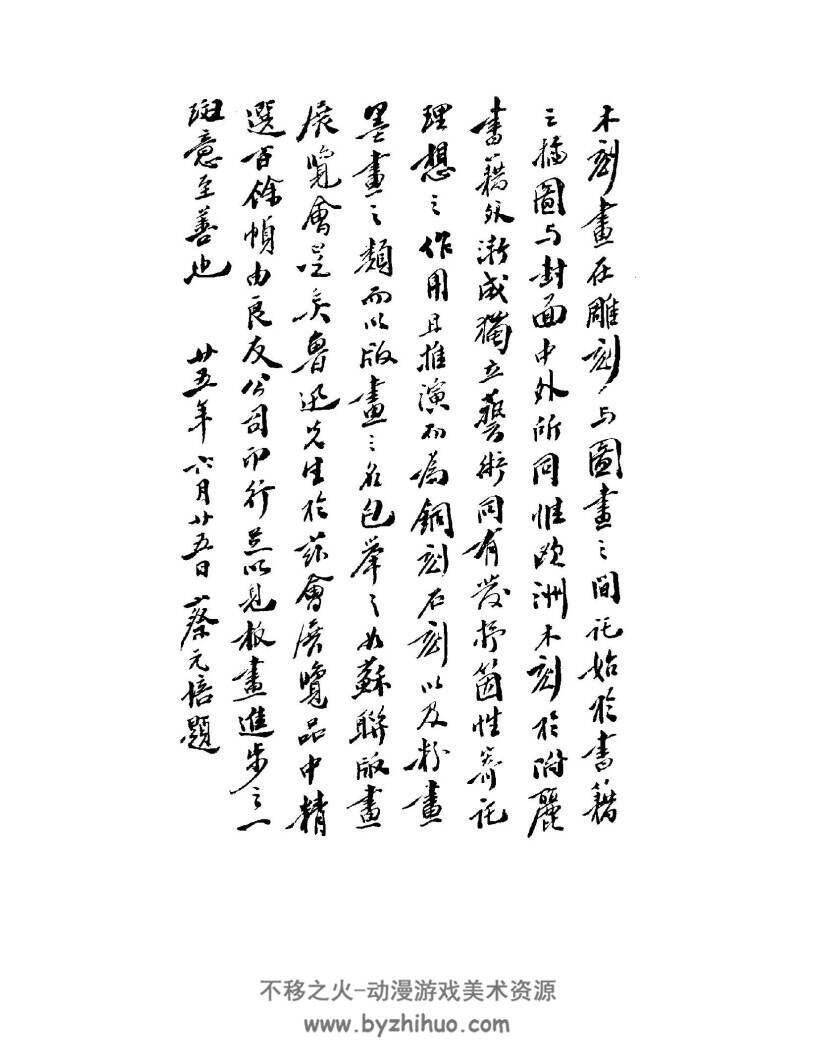 木刻畫在雕刻与圖畫之間託始於書籍
之插圖与封面中外所同惟欧洲木刻於附麗
書籍外漸成獨立藝術同有發抒箇性寄託
理想之作用且推演而爲銅刻石刻以及粉畫
墨畫之類而以版畫之名包举之如蘇聯版畫
展覽會是矣魯迅先生於茲會展覽品中精
選百餘幀由良友公司印行足以見板畫進步之一
斑意至善也 廿五年六月廿五日 蔡元培題
不移之火-动漫游戏美术资源
www.byzhihuo.com